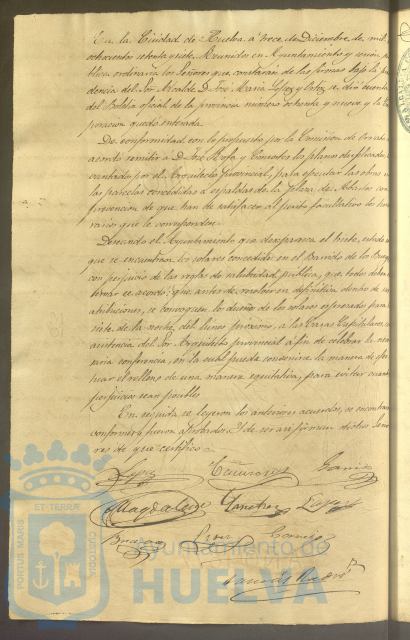 En la Ciudad de Huelva a trece de Diciembre de mil
ochocientos setenta y siete. Reunidos en Ayuntamiento y sesion pu
blica ordinaria los Señores que constarán de las firmas bajo la
dencia del Sor Alcalde D. José Maria Lopez y Lopez, se dió cuenta
del Boletin oficial de la provincia número ochenta y nueve y la
poracion quedó enterada.
De conformidad con lo propuesto por la Comision de
acordó remitir a D. José Mora y los planos
por el Arquitecto Provincial, para ejecutar las obras
las parcelas concedidas a espaldas de la Plaza de Abastos con
prevencion de que han de satisfacer al perito facultativo los hono
rarios que le correspondan.
Deseando el Ayuntamiento que desaparezca el
que se encuentran los solares concedidos en el Barrio de
con perjuicio de las reglas de salubridad pública, que todos deben
se acordó: que antes de resolver en definitiva dentro de sus
atribuciones, se convoquen los dueños de los solares espresados para
siete de la noche del lunes procsimo, a las Casas Capitulares, con
asistencia del Sor Arquitecto provincial a fin de celebrar la nece
saria conferencia, en la cual pueda convenirse la manera de efec
tuar el relleno de una manera equitativa, para evitar cuantos
perjuicios sean posibles
En seguida se leyeron los anteriores acuerdos, se encontraron
conformes y fueron aprobados. Y de ser así firman dichos Seño
res de que certifico.
Lopez Garcia
Magdalena Sanchez
Garrigo
PORTUS MARIS ET TERRAE CUSTODIA
Ayuntamiento de
HUELVA